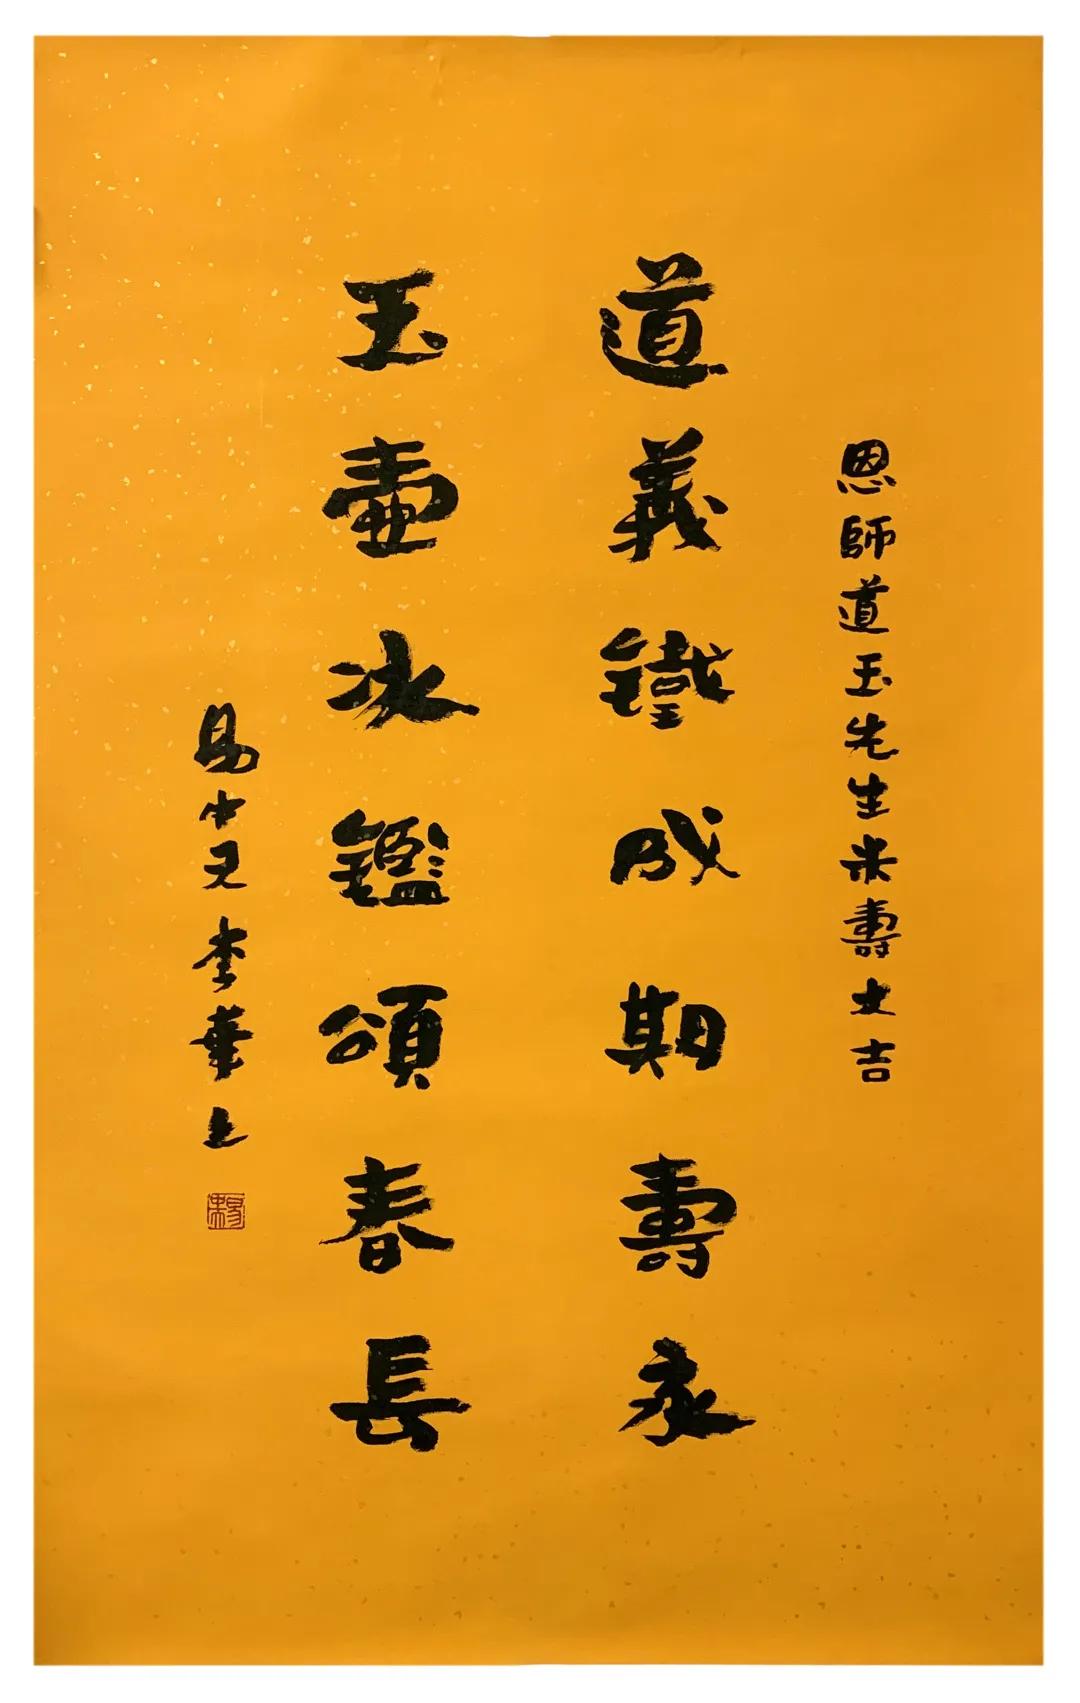 恩師道玉先生米壽大吉
道義鐵成期壽永
玉壺冰鑑頌春長
易中天李華上